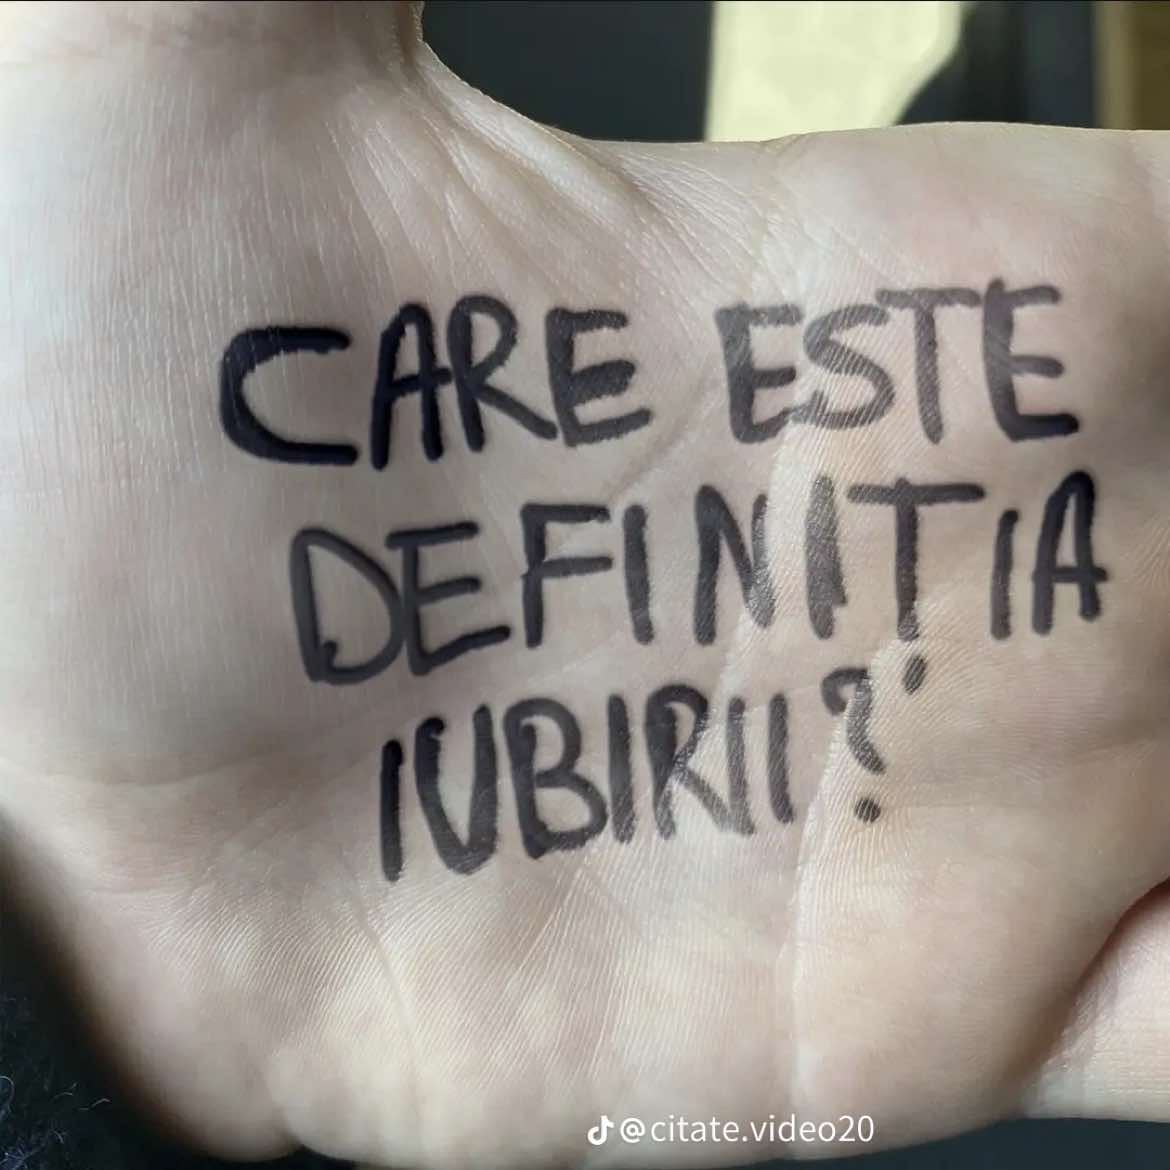 CARE ESTE
DEFINIȚIA
IUBIRII?
@citate.video20